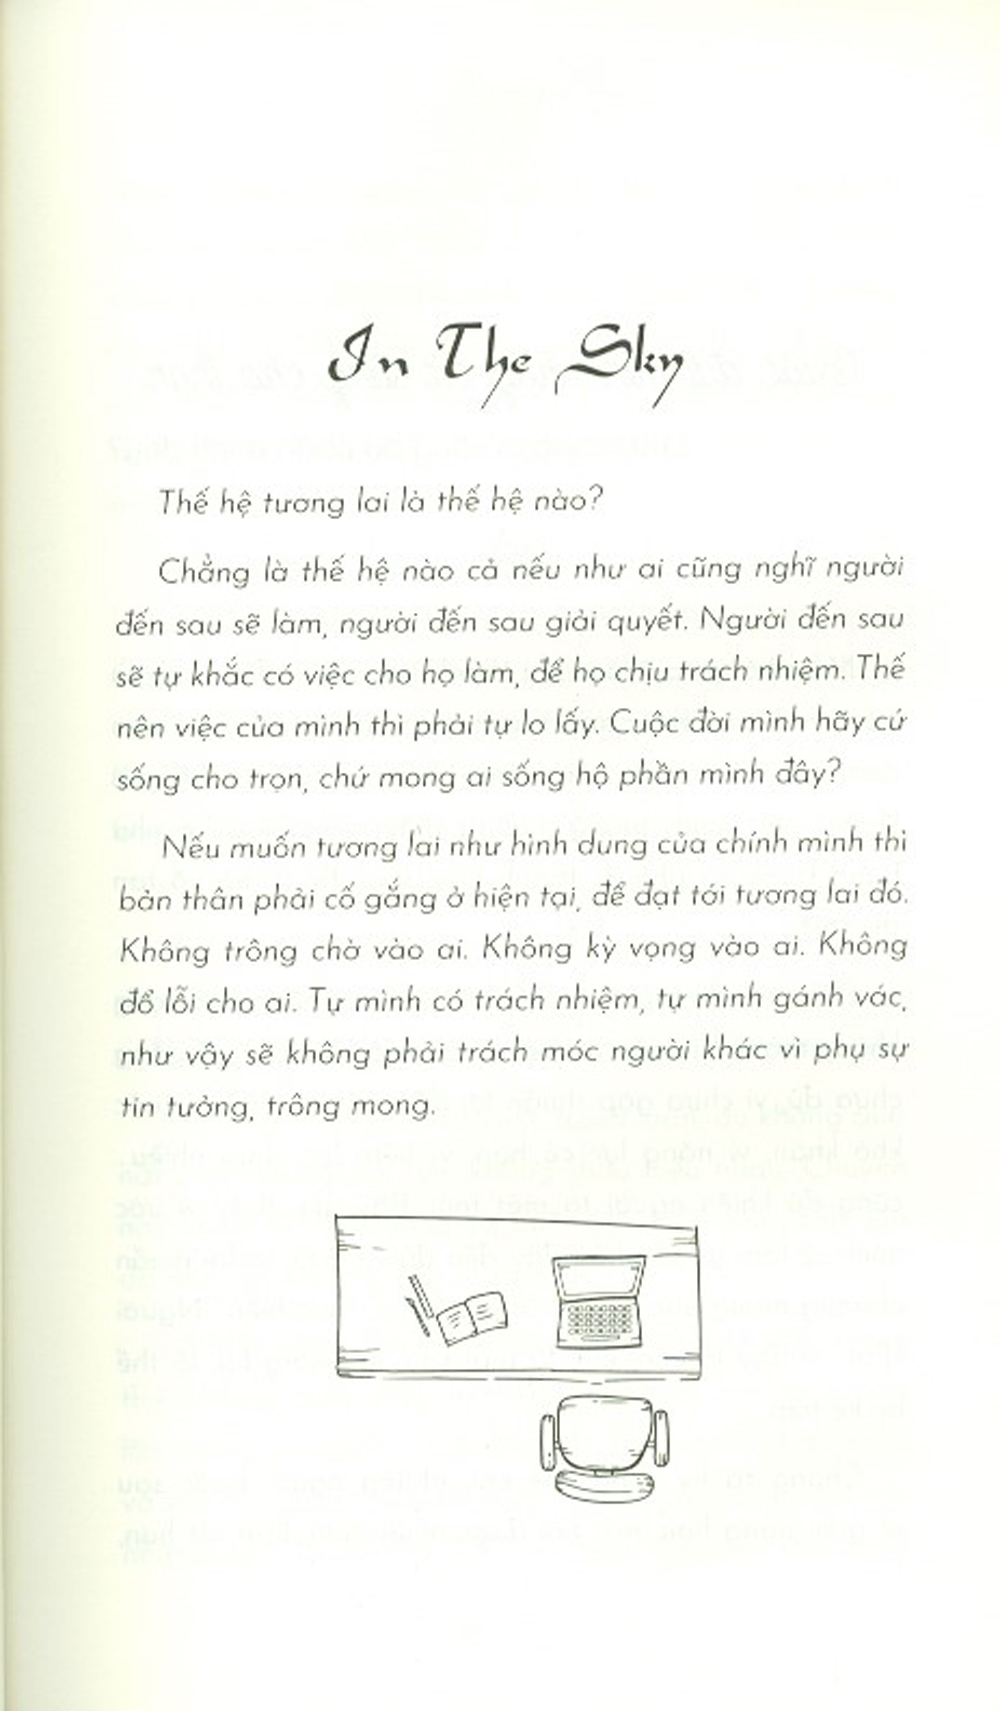 In The Sky
Thế hệ tương lai là thế hệ nào?
Chẳng là thế hệ nào cả nếu như ai cũng nghĩ người
đến sau sẽ làm, người đến sau giải quyết. Người đến sau
sẽ tự khắc có việc cho họ làm, để họ chịu trách nhiệm. Thế
nên việc của mình thì phải tự lo lấy. Cuộc đời mình hãy cứ
sống cho trọn, chứ mong ai sống hộ phần mình đây?
Nếu muốn tương lai như hình dung của chính mình thì
bản thân phải cố gắng ở hiện tại, để đạt tới tương lai đó.
Không trông chờ vào ai. Không kỳ vọng vào ai. Không
đổ lỗi cho ai. Tự mình có trách nhiệm, tự mình gánh vác,
như vậy sẽ không phải trách móc người khác vì phụ sự
tin tưởng, trông mong.